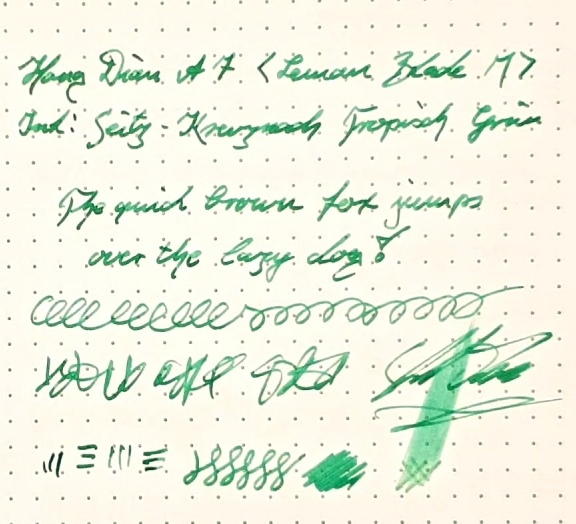 Hong Dian A7 <Leman Blade M>
Ink: Seitz-Kreuznach Tropisch Grün
The quick brown fox jumps
over the lazy dog!